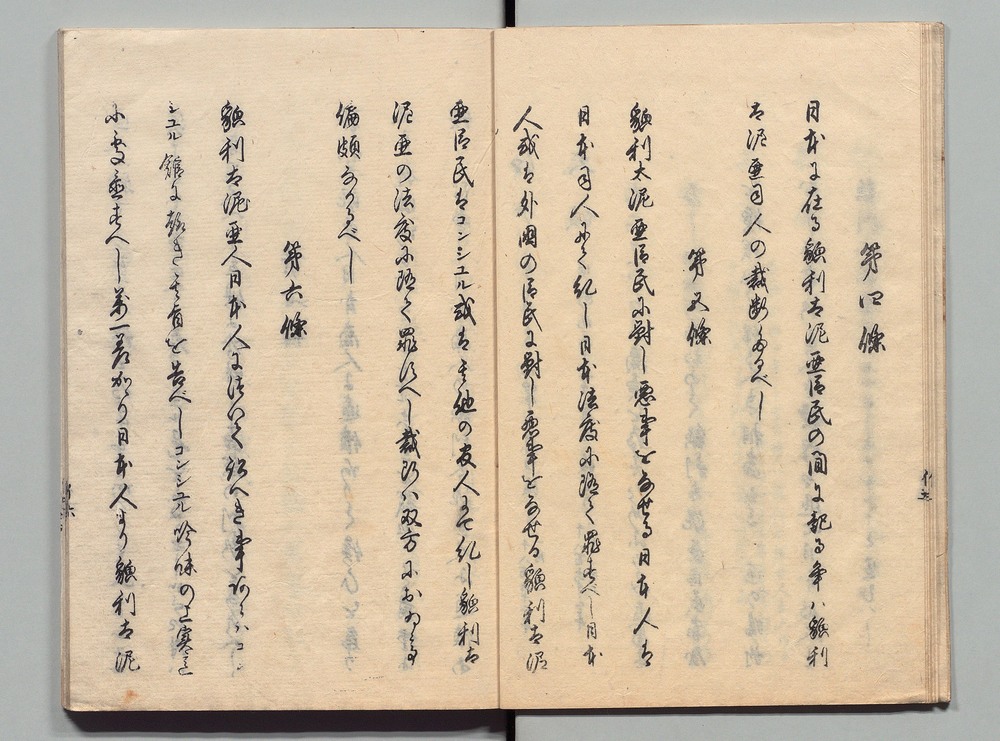 第四條
日本に在る貌利太泥亜臣民の間に起る争ハ貌利
太泥亜司人の裁断たるべし
第五條
貌利太泥亜臣民に對し悪事をなせる日本人は
日本司人にて糺し日本法度に随て罪すべし日本
人或は外國の臣民に對し悪事をなせる貌利太泥
亜臣民はコンシユル或は其他の官人にて糺し貌利太
泥亜の法度に随て罪すへし裁断ハ双方において
偏頗なかるべし
第六條
貌利太泥亜人日本人に付いて訟へき事あらハコン
シユル館に趣き其旨を告べしコンシユル吟味の上実意
に処置すへし萬一若かり日本人より貌利太泥